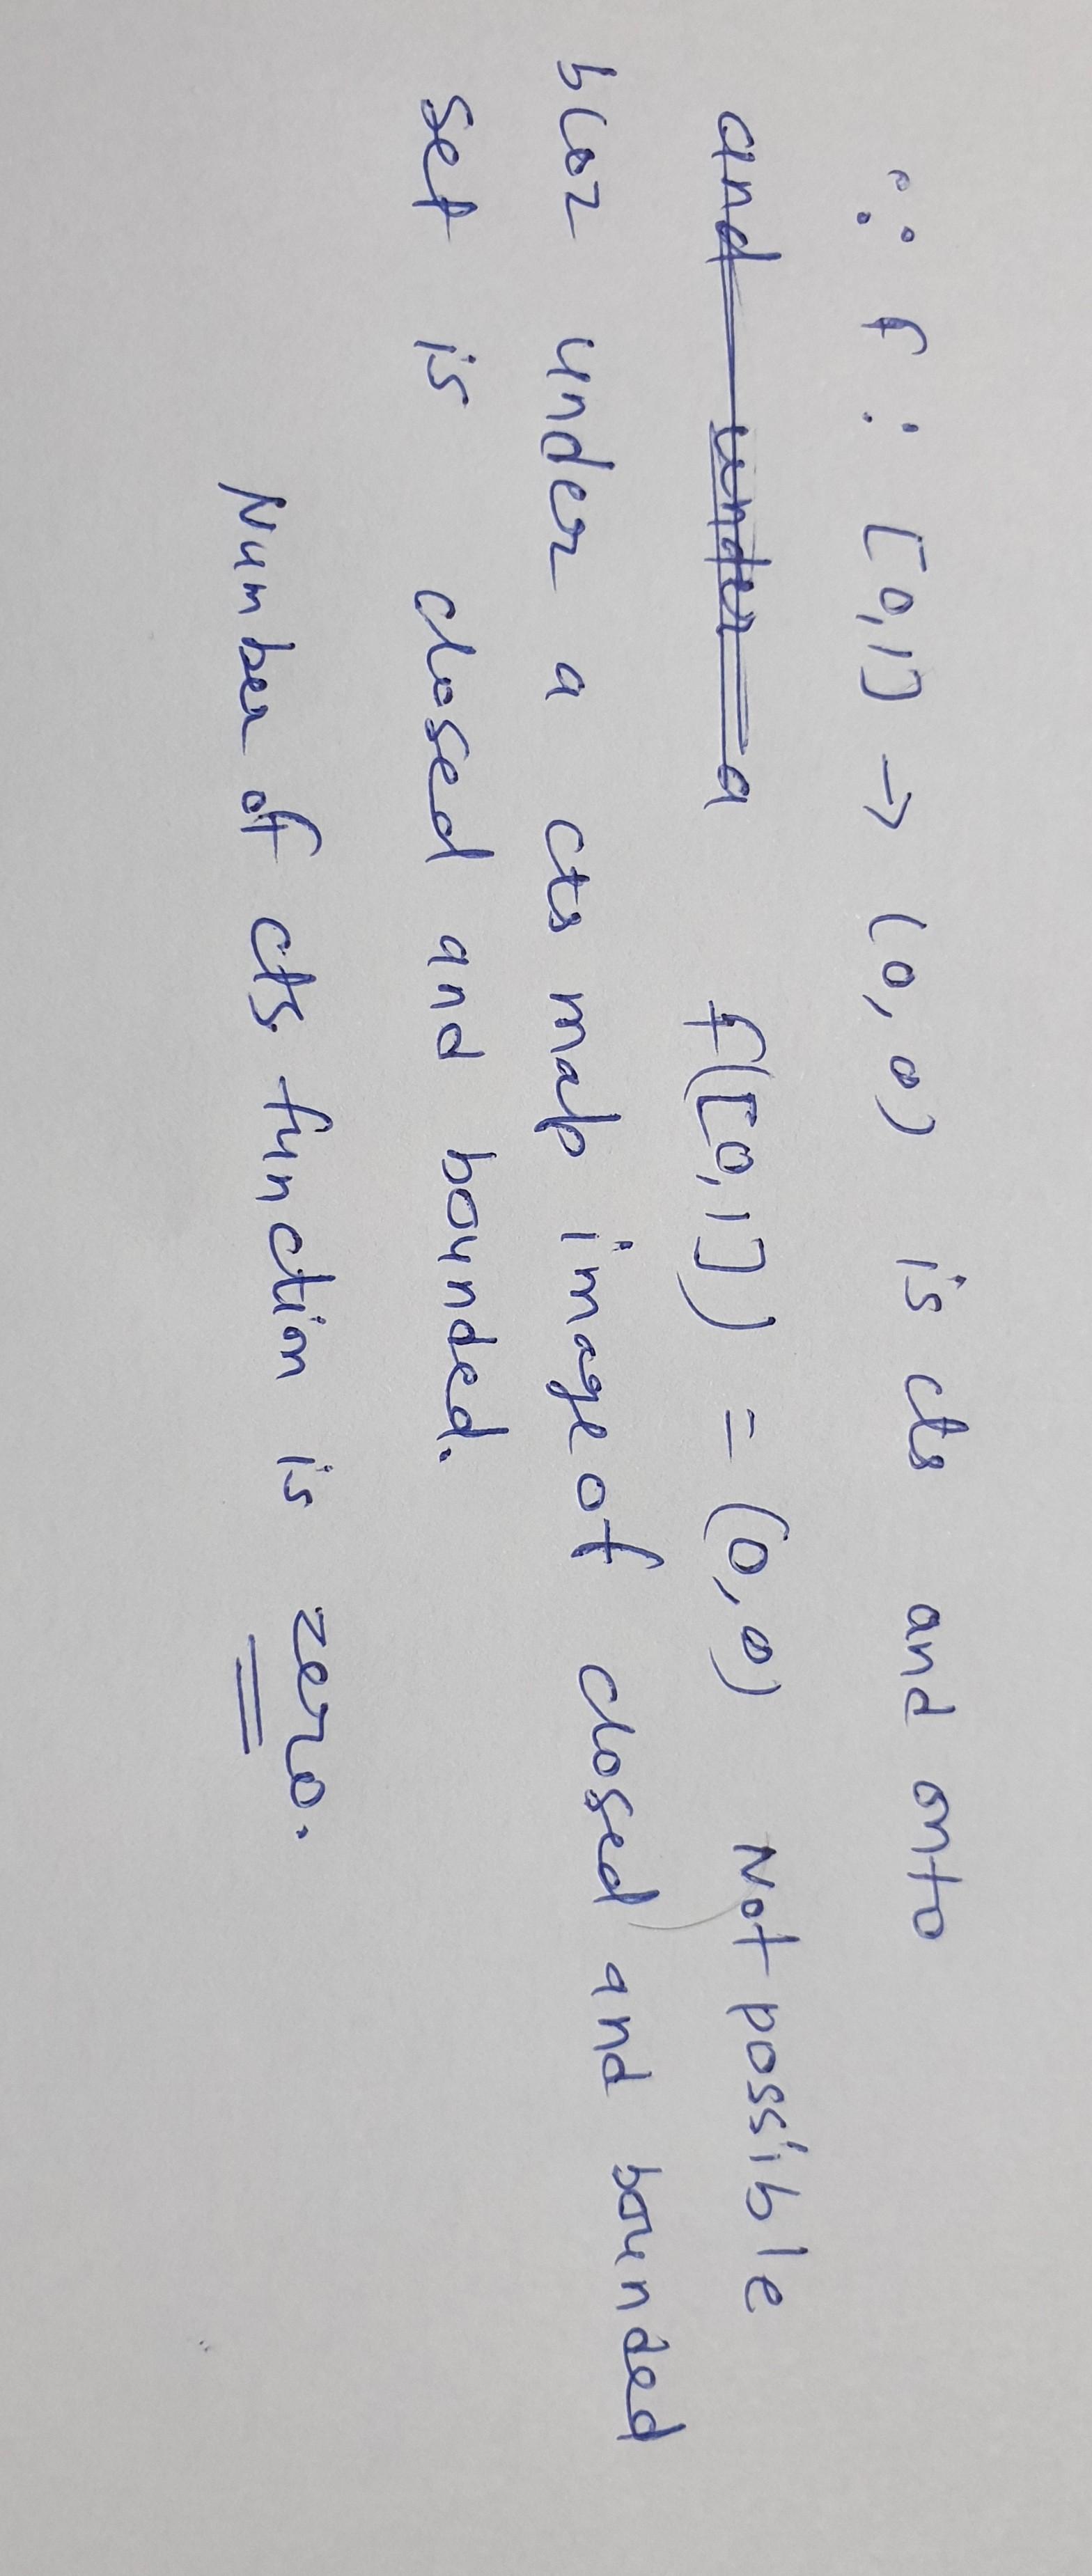 ∵ f : [0,1] → (0,0) is cts and onto
and under a f([0,1]) = (0,0) Not possible
bcoz under a cts map image of closed and bounded
set is closed and bounded.
Number of cts function is zero.